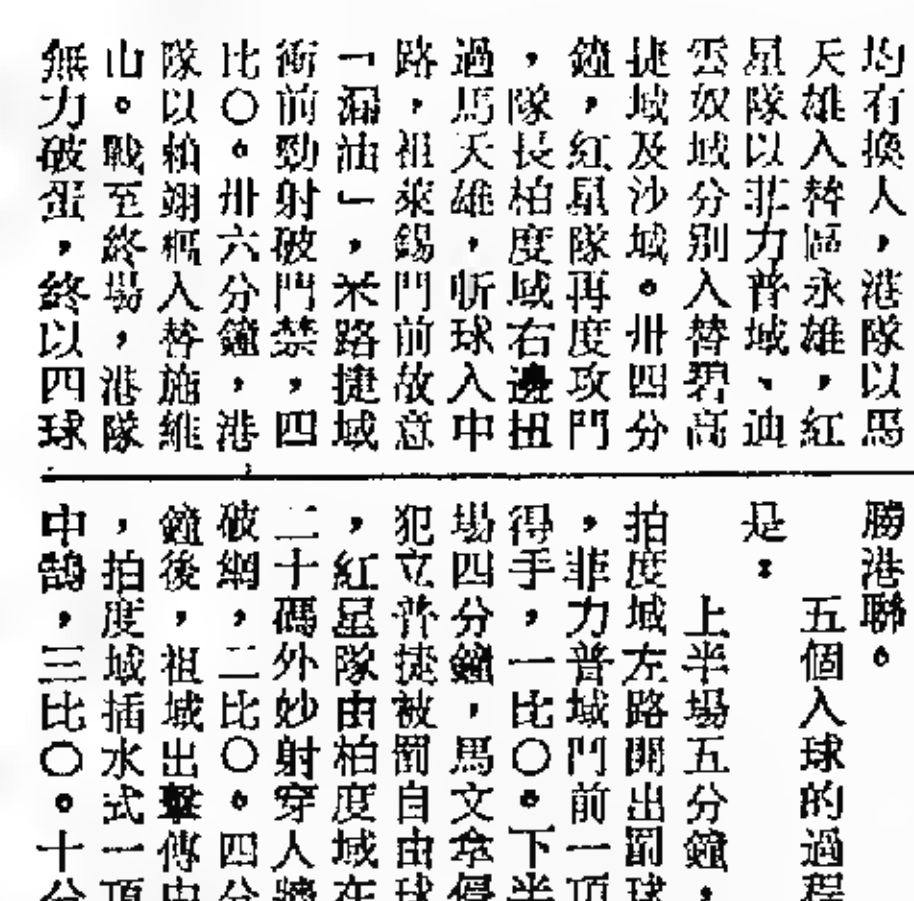 均有換人，港隊以馬
天雄入替區永雄，紅
星隊以菲力普域、迪
雲奴域分别入替碧高
捷域及沙域。卅四分
鐘，紅星隊再度攻門
，隊長柏度域右邊扭
過馬天雄，斬球入中
路，祖萊錫門前故意
「漏油」，米路捷域
衝前勁射破門禁，四
比〇。卅六分鐘，港
隊以賴翊樞入替施維
山。戰至終場，港隊
無力破蛋，終以四球
勝港聯。
五個入球的過程
是：
上半場五分鐘，
拍度域左路開出罰球
，菲力普域門前一頂
得手，一比〇。下半
場四分鐘，馬文拿侵
犯立普捷被罰自由球
，紅星隊由柏度域在
二十碼外妙射穿人牆
破網，二比〇。四分
鐘後，祖域出擊傳中
，拍度域插水式一頂
中鵠，三比〇。十分